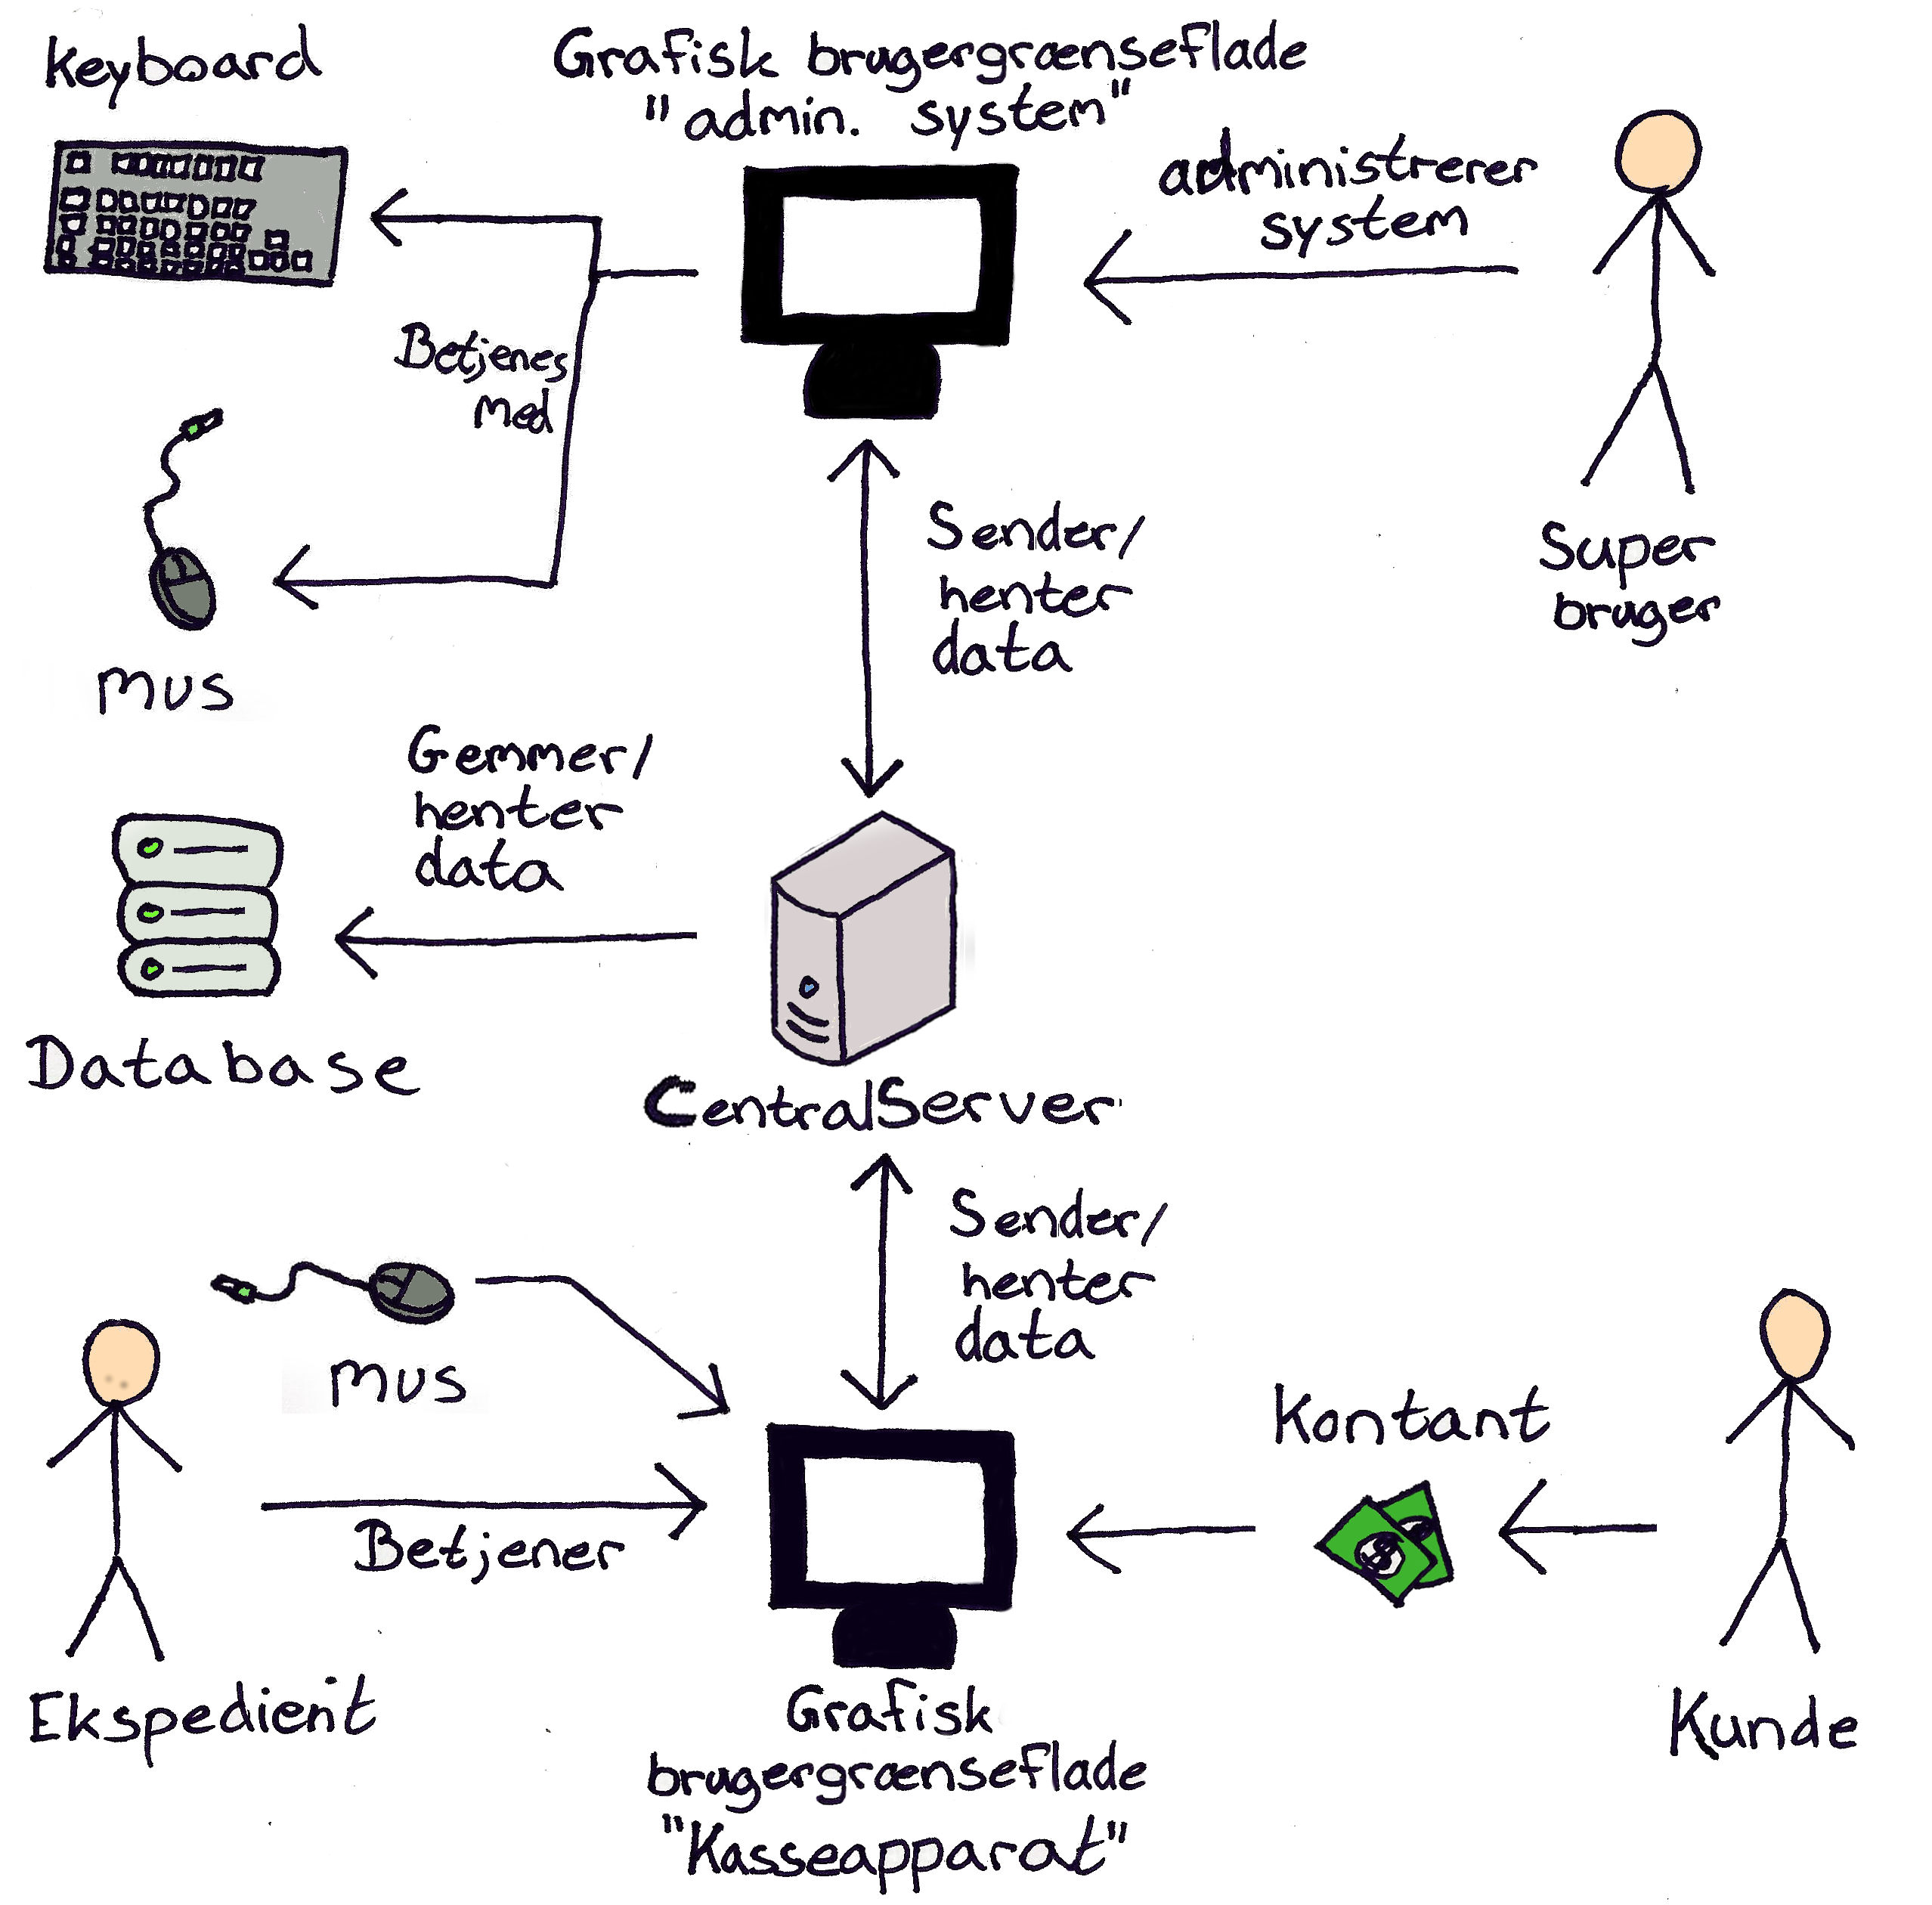 Keyboard
Grafisk brugergrænseflade
"admin. system"
administrerer
system
Betjenes
med
Sender/
henter
data
Super
bruger
mus
Gemmer/
henter
data
Database
CentralServer
Sender/
henter
data
mus
Kontant
$
Betjener
Ekspedient
Grafisk
brugergrænseflade
"Kasseapparat"
Kunde